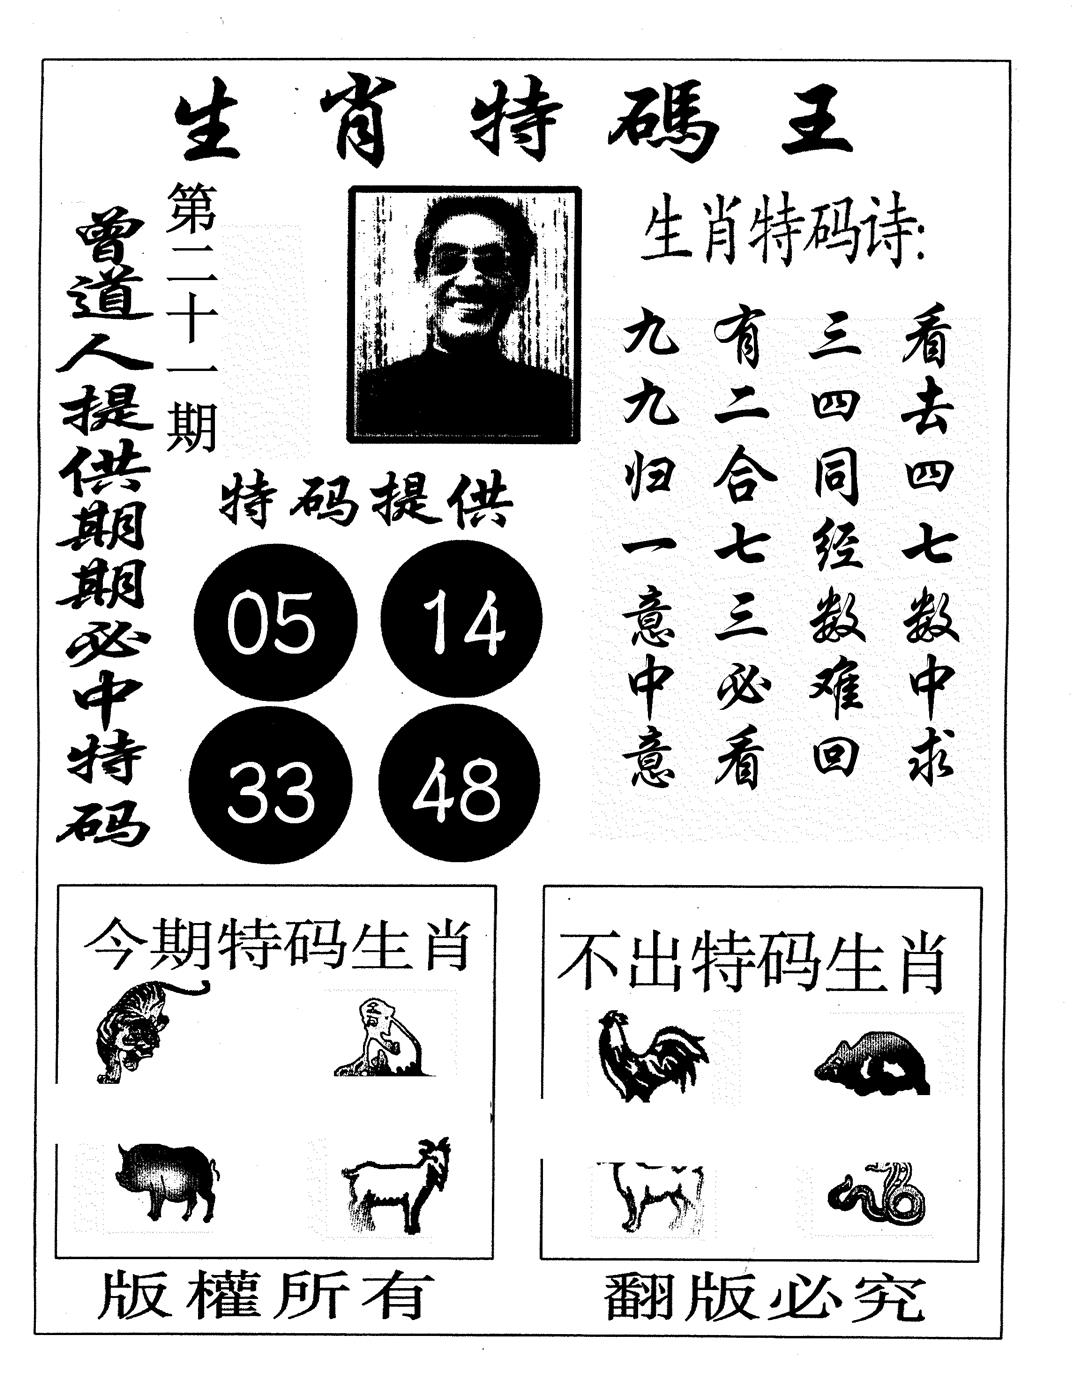 生肖特碼王
曾道人提供期期必中特码
第二十一期
生肖特码诗:
九九归一意中意
有二合七三必看
三四同经数难回
看去四七数中求
特码提供
05 14
33 48
今期特码生肖
不出特码生肖
版權所有
翻版必究